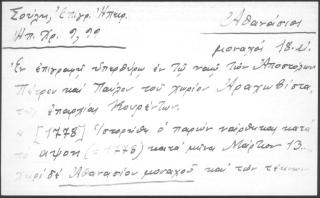 Σούλη, Ἐπιγρ. Ἠπείρ.
Ἠπ. Χρ. 9, 99
Ἀθανάσιοι
μοναχοὶ 18 αἰ.
Ἐν ἐπιγραφῇ ὑπερθύρῳ ἐν τῷ ναῷ τῶν Ἀποστόλων
Πέτρου καὶ Παύλου τοῦ χωρίου Ἀραχωβίστα
τῆς ἐπαρχίας Κουρέντων.
[1778] Ἱστορήθη ὁ παρὼν νάρθηκας κατὰ
τὸ αψοη (= 1778) κατὰ μῆνα Μάρτιον 13...
χειρὶ δὲ Ἀθανασίου μοναχοῦ καὶ τῶν τέκνων